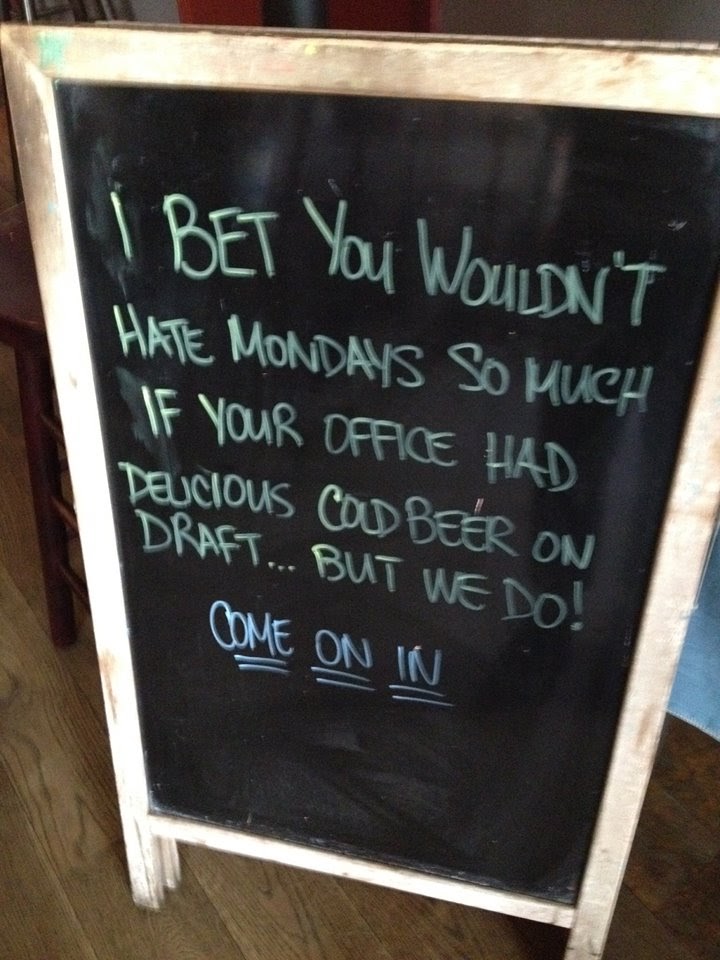 I BET YOU WOULDN'T
HATE MONDAYS SO MUCH
IF YOUR OFFICE HAD
DELICIOUS COLD BEER ON
DRAFT... BUT WE DO!
COME ON IN